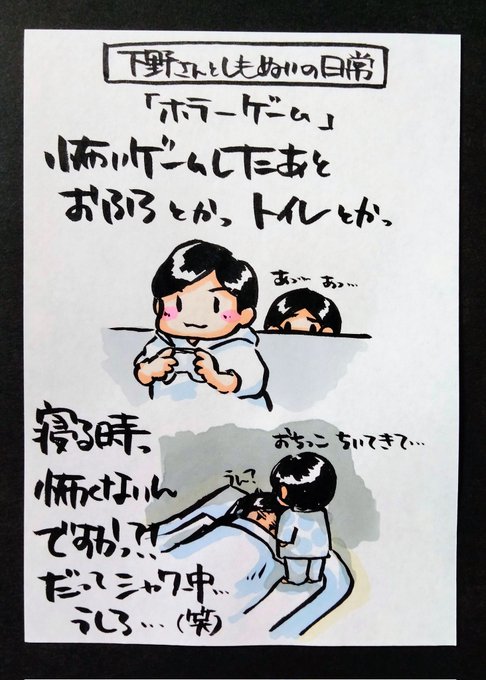 下野さんとしもぬいの日常
「ホラーゲーム」
怖いゲームしたあと
おふろとかっ トイレとかっ
あっ… あっ…
寝る時っ
怖くないん
ですかっ?!
だってシャワ中…
うしろ…(笑)
おちっこ ちいてきて…
うん?